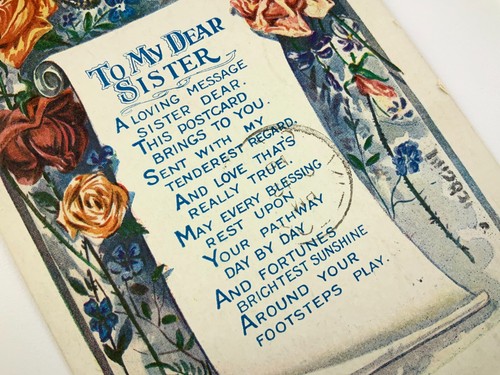 To My Dear
Sister
A loving message
sister dear.
This postcard
brings to you.
Sent with my
tenderest regard.
And love that's
really true.
May every blessing
rest upon
Your pathway
day by day
And fortunes
brightest sunshine
Around your
footsteps play.